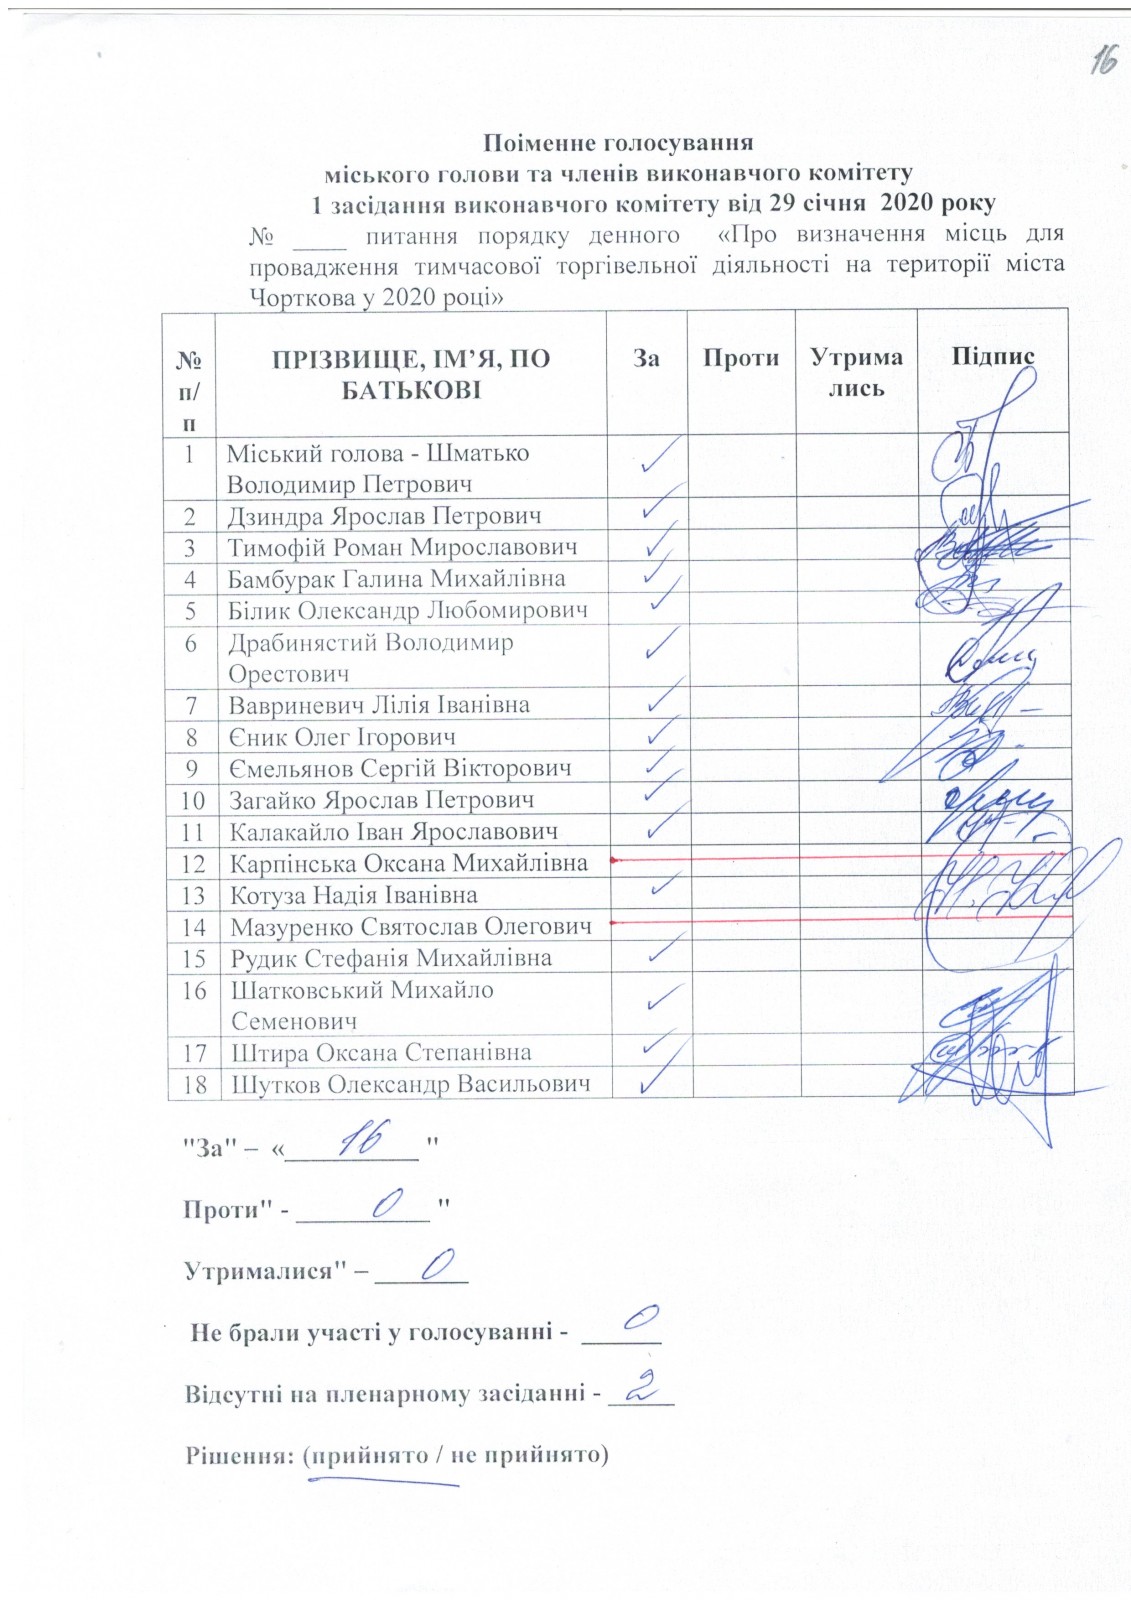 16
Поіменне голосування
міського голови та членів виконавчого комітету
1 засідання виконавчого комітету від 29 січня 2020 року
№ ____ питання порядку денного «Про визначення місць для
провадження тимчасової торгівельної діяльності на території міста
Чорткова у 2020 році»
№ п/п ПРІЗВИЩЕ, ІМ’Я, ПО БАТЬКОВІ За Проти Утрима лись Підпис
1 Міський голова - Шматько
Володимир Петрович ✓
2 Дзиндра Ярослав Петрович ✓
3 Тимофій Роман Мирославович ✓
4 Бамбурак Галина Михайлівна ✓
5 Білик Олександр Любомирович ✓
6 Драбинястий Володимир
Орестович ✓
7 Вавриневич Лілія Іванівна ✓
8 Єник Олег Ігорович ✓
9 Ємельянов Сергій Вікторович ✓
10 Загайко Ярослав Петрович ✓
11 Калакайло Іван Ярославович ✓
12 Карпінська Оксана Михайлівна
13 Котуза Надія Іванівна ✓
14 Мазуренко Святослав Олегович
15 Рудик Стефанія Михайлівна ✓
16 Шатковський Михайло
Семенович ✓
17 Штира Оксана Степанівна ✓
18 Шутков Олександр Васильович ✓
"За" – «__16__ "
Проти" - __0__ "
Утрималися" – __0__
Не брали участі у голосуванні - __0__
Відсутні на пленарному засіданні - __2__
Рішення: (прийнято / не прийнято)